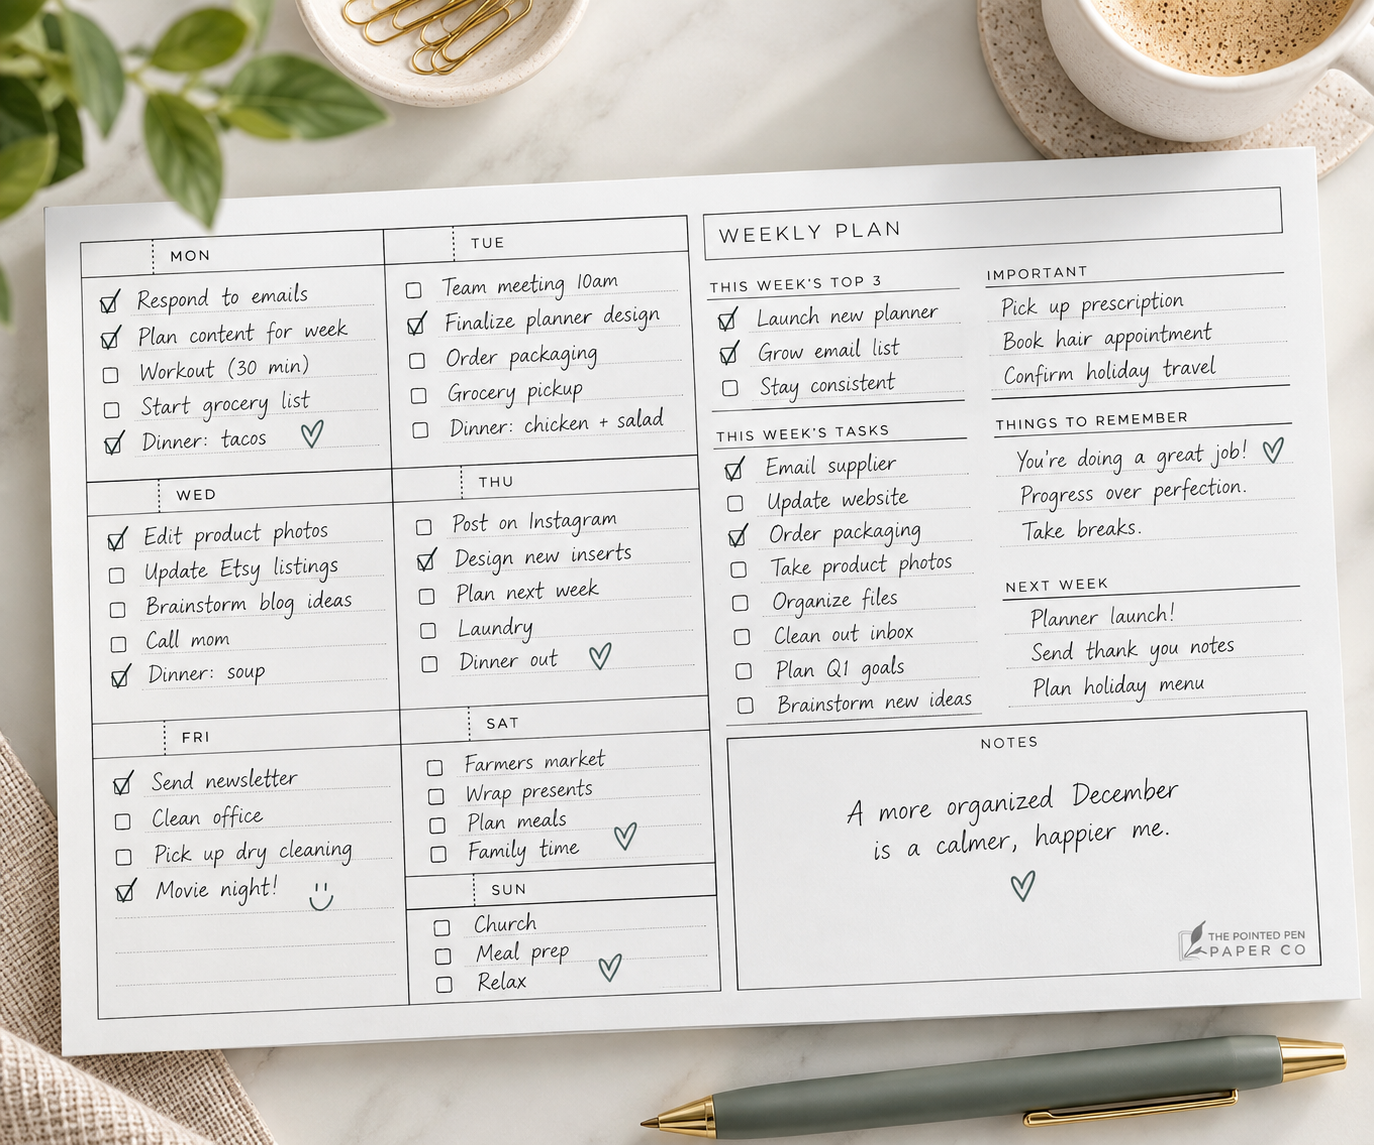 MON
Respond to emails
Plan content for week
Workout (30 min)
Start grocery list
Dinner: tacos
TUE
Team meeting 10am
Finalize planner design
Order packaging
Grocery pickup
Dinner: chicken + salad
WED
Edit product photos
Update Etsy listings
Brainstorm blog ideas
Call mom
Dinner: soup
THU
Post on Instagram
Design new inserts
Plan next week
Laundry
Dinner out
FRI
Send newsletter
Clean office
Pick up dry cleaning
Movie night!
SAT
Farmers market
Wrap presents
Plan meals
Family time
SUN
Church
Meal prep
Relax
WEEKLY PLAN
THIS WEEK'S TOP 3
Launch new planner
Grow email list
Stay consistent
THIS WEEK'S TASKS
Email supplier
Update website
Order packaging
Take product photos
Organize files
Clean out inbox
Plan Q1 goals
Brainstorm new ideas
IMPORTANT
Pick up prescription
Book hair appointment
Confirm holiday travel
THINGS TO REMEMBER
You're doing a great job!
Progress over perfection.
Take breaks.
NEXT WEEK
Planner launch!
Send thank you notes
Plan holiday menu
NOTES
A more organized December
is a calmer, happier me.
THE POINTED PEN
PAPER CO